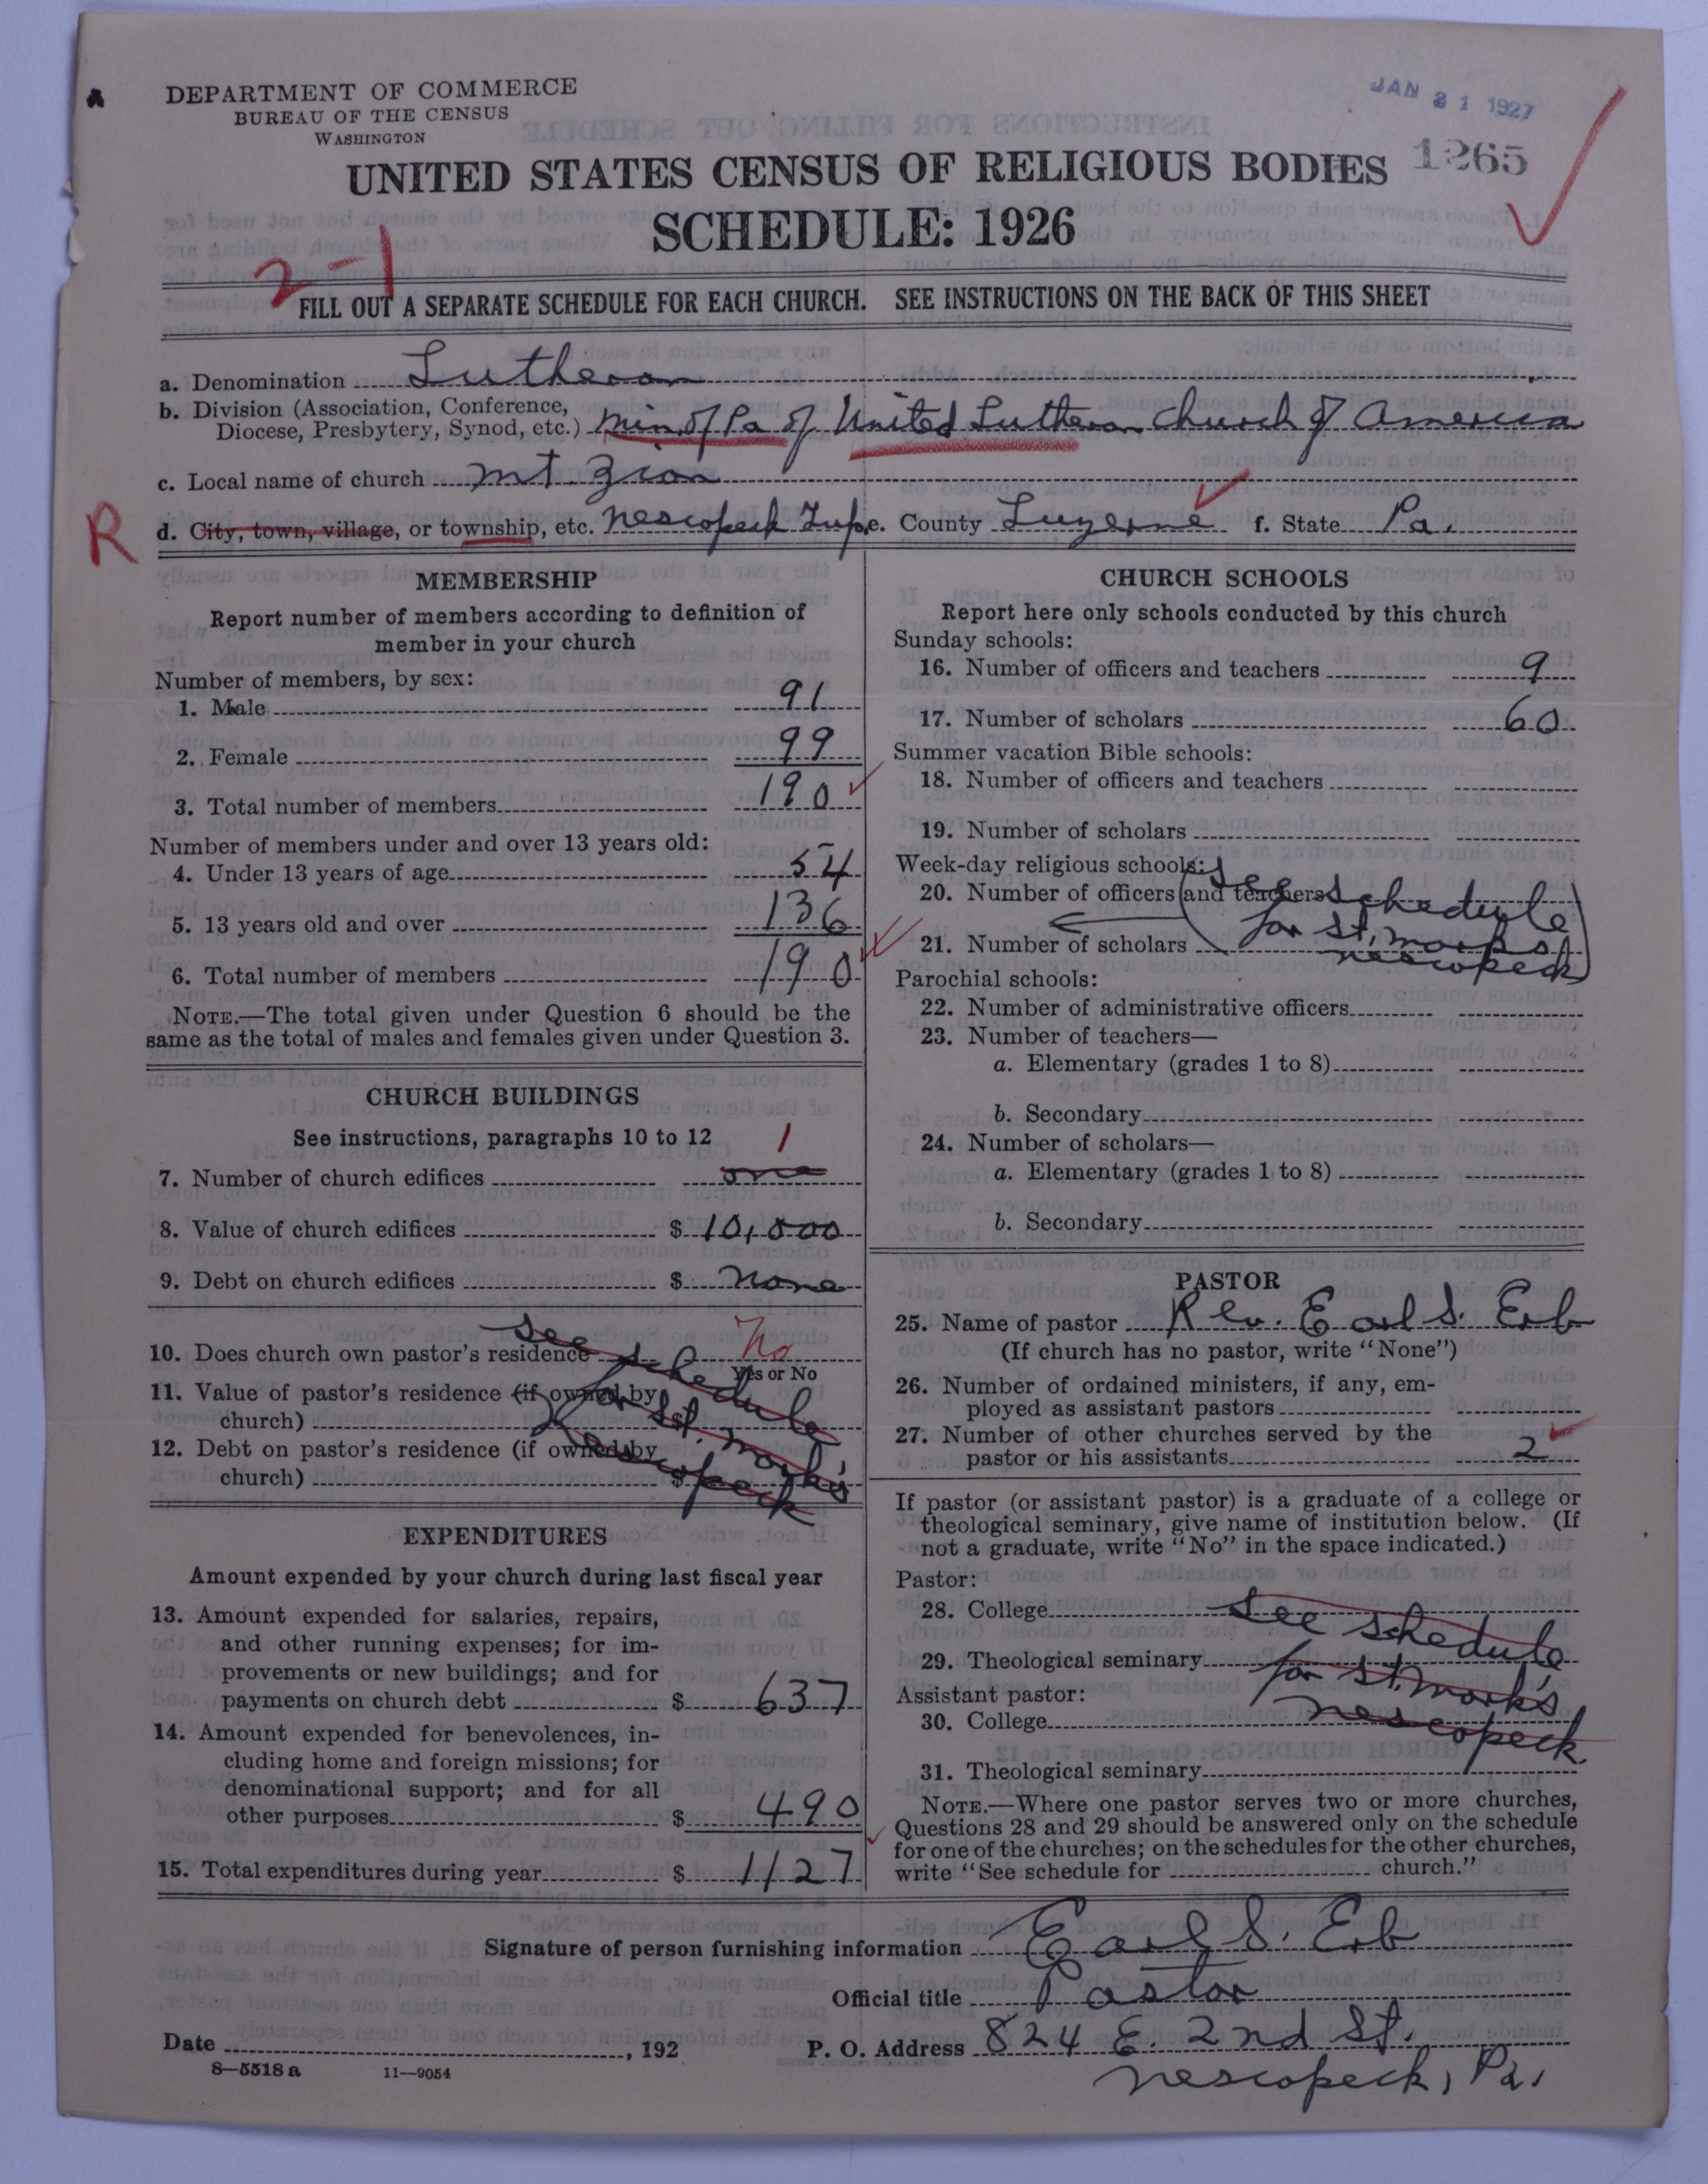 DEPARTMENT OF COMMERCE
BUREAU OF THE CENSUS
WASHINGTON
JAN 31 1927
1265
UNITED STATES CENSUS OF RELIGIOUS BODIES
SCHEDULE: 1926
2-1
FILL OUT A SEPARATE SCHEDULE FOR EACH CHURCH. SEE INSTRUCTIONS ON THE BACK OF THIS SHEET
a. Denomination Lutheran
b. Division (Association, Conference,
Diocese, Presbytery, Synod, etc.) Min. of Pa of United Lutheran Church of America
c. Local name of church Mt. Zion
R
d. City, town, village, or township, etc. Nescopeck Twp. e. County Luzerne f. State Pa.
MEMBERSHIP
Report number of members according to definition of
member in your church
Number of members, by sex:
1. Male 91
2. Female 99
3. Total number of members 190
Number of members under and over 13 years old:
4. Under 13 years of age 54
5. 13 years old and over 136
6. Total number of members 190
NOTE.—The total given under Question 6 should be the
same as the total of males and females given under Question 3.
CHURCH BUILDINGS
See instructions, paragraphs 10 to 12
1
7. Number of church edifices one
8. Value of church edifices $ 10,000
9. Debt on church edifices $ none
10. Does church own pastor's residence No
Yes or No
11. Value of pastor's residence (if owned by
church) $
12. Debt on pastor's residence (if owned by
church) $
see
schedule
for St. Mark's
Nescopeck
EXPENDITURES
Amount expended by your church during last fiscal year
13. Amount expended for salaries, repairs,
and other running expenses; for im-
provements or new buildings; and for
payments on church debt $ 637
14. Amount expended for benevolences, in-
cluding home and foreign missions; for
denominational support; and for all
other purposes $ 490
15. Total expenditures during year $ 1127
CHURCH SCHOOLS
Report here only schools conducted by this church
Sunday schools:
16. Number of officers and teachers 9
17. Number of scholars 60
Summer vacation Bible schools:
18. Number of officers and teachers
19. Number of scholars
Week-day religious schools:
20. Number of officers and teachers
21. Number of scholars
(see schedule
for St. Mark's
Nescopeck)
Parochial schools:
22. Number of administrative officers
23. Number of teachers—
a. Elementary (grades 1 to 8)
b. Secondary
24. Number of scholars—
a. Elementary (grades 1 to 8)
b. Secondary
PASTOR
25. Name of pastor Rev. Earl S. Erb
(If church has no pastor, write "None")
26. Number of ordained ministers, if any, em-
ployed as assistant pastors
27. Number of other churches served by the
pastor or his assistants 2
If pastor (or assistant pastor) is a graduate of a college or
theological seminary, give name of institution below. (If
not a graduate, write "No" in the space indicated.)
Pastor:
28. College see schedule
29. Theological seminary for St. Mark's
Assistant pastor:
30. College Nescopeck.
31. Theological seminary
NOTE.—Where one pastor serves two or more churches,
Questions 28 and 29 should be answered only on the schedule
for one of the churches; on the schedules for the other churches,
write "See schedule for church."
Signature of person furnishing information Earl S. Erb
Official title Pastor
Date , 192
P. O. Address 824 E. 2nd St.
Nescopeck, Pa.
8—5518 a 11—9054